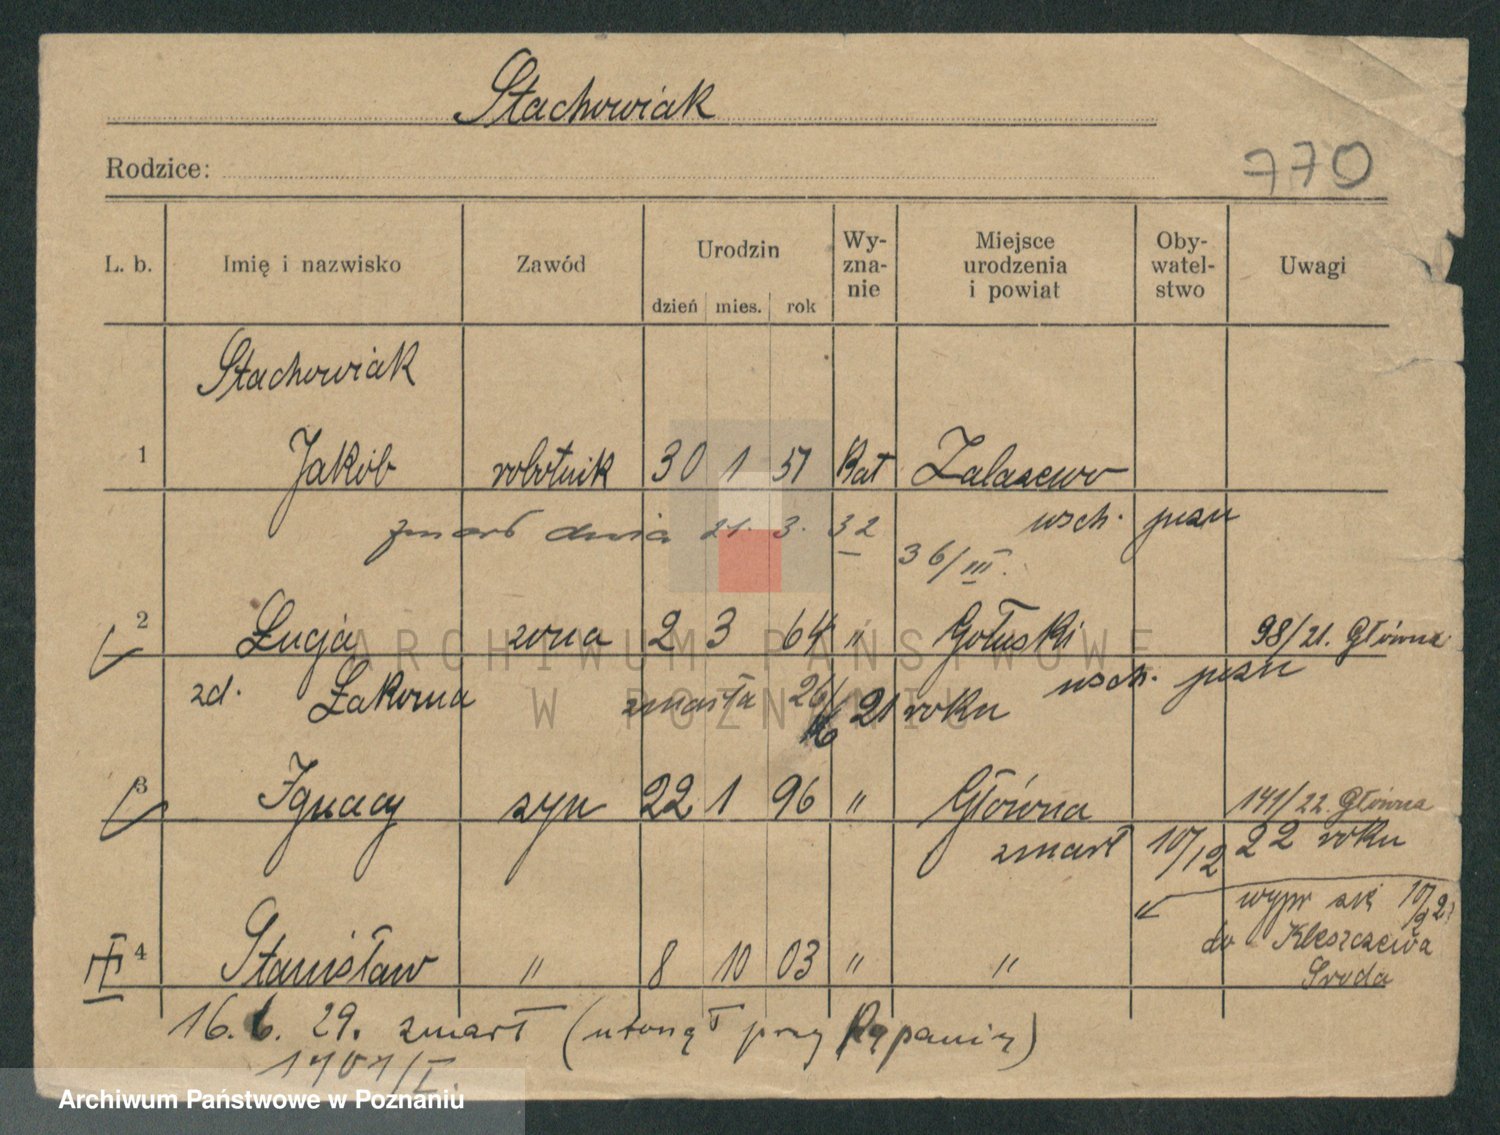 Stachowiak
Rodzice:
770
L. b. Imię i nazwisko Zawód Urodzin dzień mies. rok Wy-zna-nie Miejsce urodzenia i powiat Oby-watel-stwo Uwagi
Stachowiak
1 Jakób robotnik 30 1 51 Kat Zalasewo
zmarł dnia 21. 3. 32 wsch. pozn
36/III.
2 Łucja żona 2 3 64 " Gołuski 98/21. Główna
zd. Łakoma zmarła 26/6 21 roku wsch. pozn
3 Ignacy syn 22 1 96 " Główna 141/22. Główna
zmarł 10/12 22 roku
wypr się 10/2 2
do Kleszczewa
4 Stanisław " 8 10 03 " " Środa
16. 6. 29. zmarł (utonął przy kąpaniu)
1701/I.
ARCHIWUM PAŃSTWOWE
W POZNANIU
Archiwum Państwowe w Poznaniu